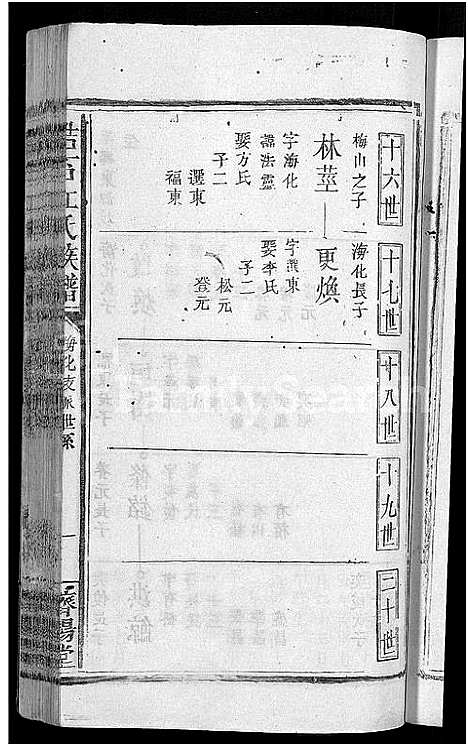 十六世
十七世
十八世
十九世
二十世
梅山之子
林莖
字海化
諡法靈
娶方氏
子二
選東
福東
海化長子
更煥
字選東
娶李氏
子二
松元
登元
江氏族譜
海化支派世系
一
濟陽堂